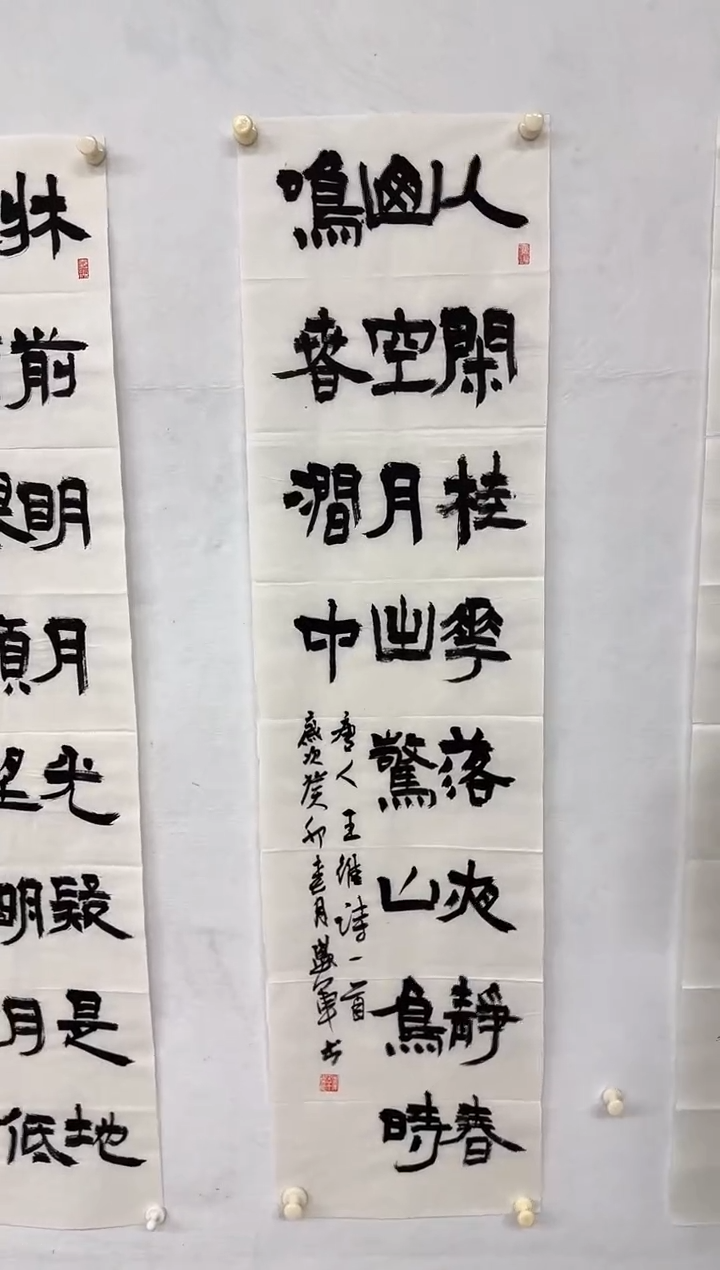 人閑桂華落夜靜春
空月出驚山鳥時
鳴春澗中
唐人王維詩一首
歲次癸卯月軍書
牀前明月光疑是地
望明月低